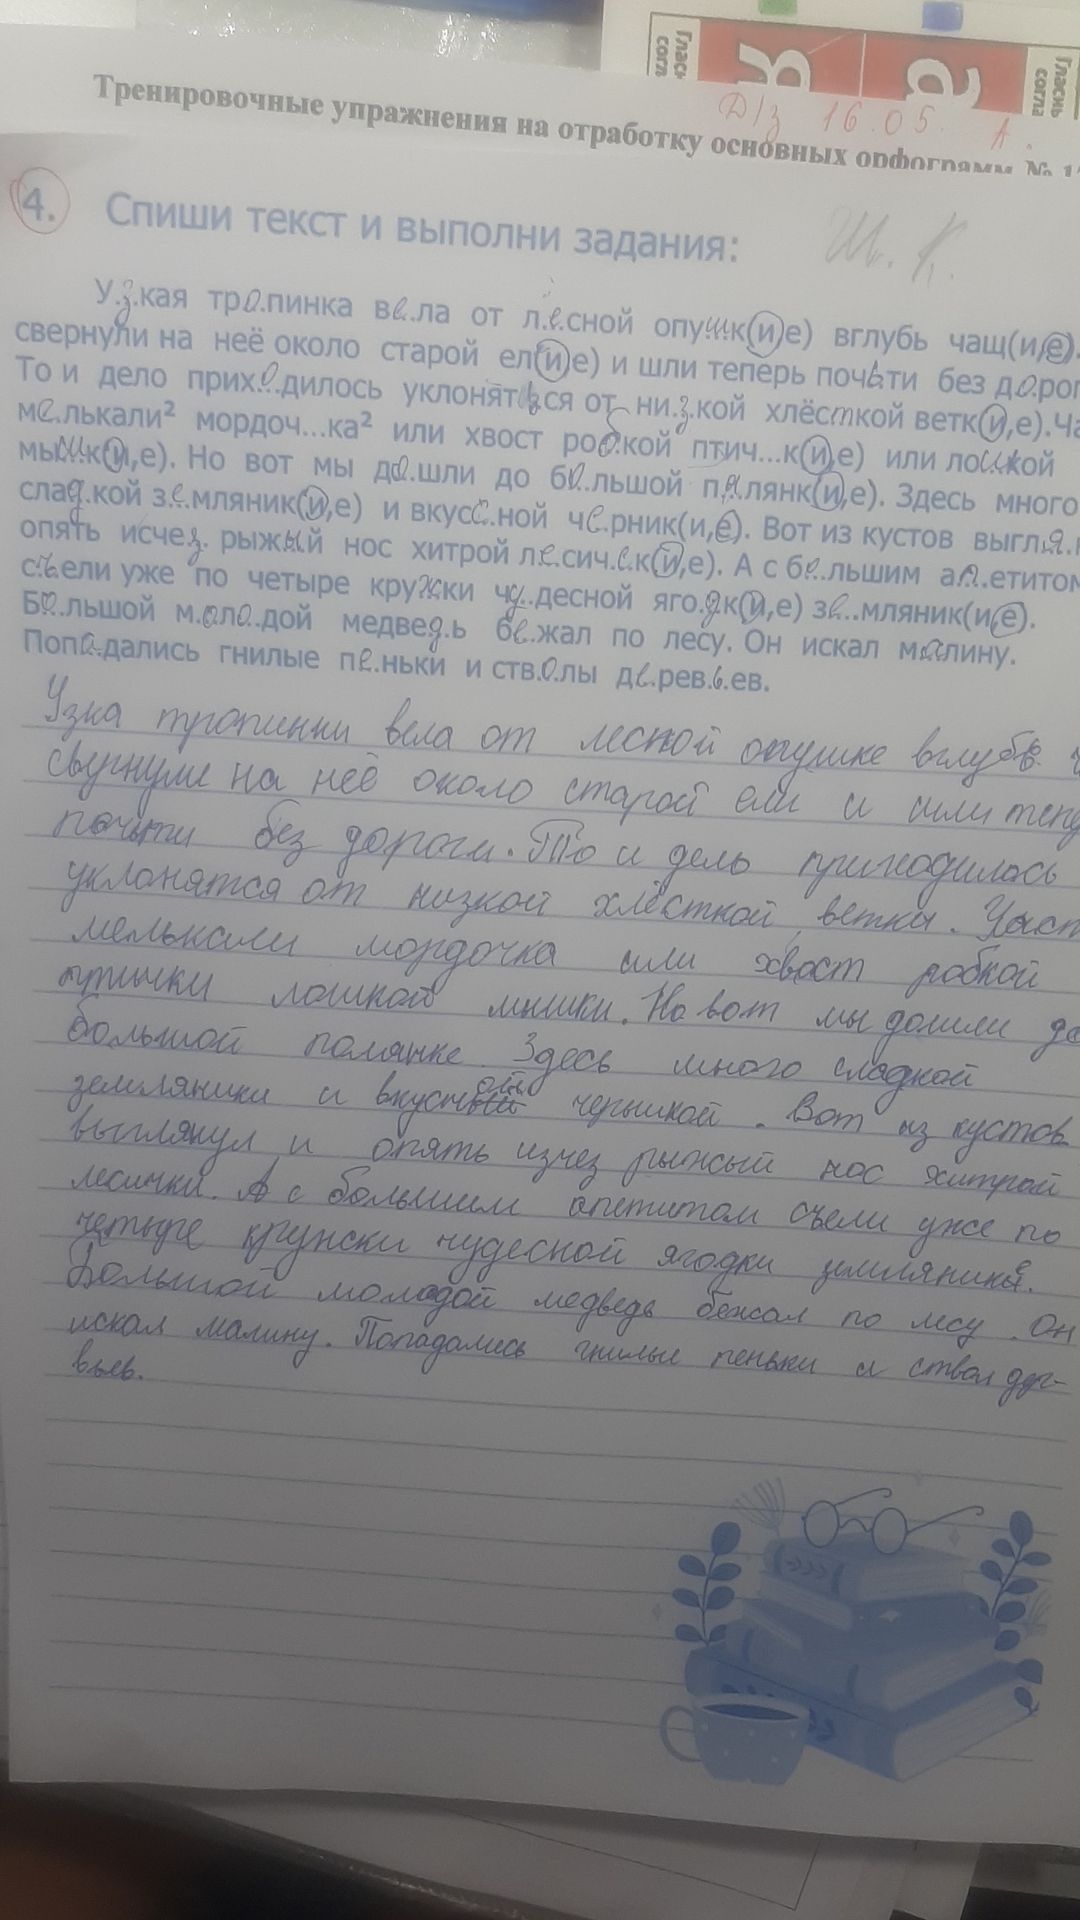 Глас
согл
Я
а
Гласн
согла
Д/з 16.05. А.
Тренировочные упражнения на отработку основных орфограмм № 1
4. Спиши текст и выполни задания:
Ш. К.
У.з.кая тро.пинка ве.ла от л.е.сной опу.ш.к(и,е) вглубь чащ(и,е).
свернули на неё около старой ел(и,е) и шли теперь почьти без до.рог
То и дело прих.о.дилось уклоняться от ни.з.кой хлёсткой ветк(и,е).Ча
ме.лькали² мордоч...ка² или хвост роб.кой птич...к(и,е) или лошкой
мыш.к(и,е). Но вот мы до.шли до бо.льшой по.лянк(и,е). Здесь много
слад.кой зе.мляник(и,е) и вкусс.ной че.рник(и,е). Вот из кустов выгля.н
опять исчез. рыжый нос хитрой ле.сич.е.к(и,е). А с бо.льшим ап..етитом
съели уже по четыре кружки чу..десной яго.дк(и,е) зе...мляник(и,е).
Бо.льшой м.оло..дой медвед.ь бе.жал по лесу. Он искал малину.
Попа.дались гнилые пе.ньки и ств.о.лы де.рев.ь.ев.
Узка тропинки вела от лесной опушке вглубь
свернули на неё около старой ели и шли тепе
почьти без дороги. То и дель приходилось
уклонятся от низкой хлёсткой ветки. Част
мелькали мордочка или хвост робкой
птички лошкой мышки. Но вот мы дошли до
большой полянке Здесь много сладкой
земляники и вкусной черникой. Вот из кустов
выглянул и опять изчез рыжый нос хитрой
лесички. А с большим апетитом съели уже по
четыре кружски чудесной ягодки земляники.
Большой молодой медведь бежал по лесу. Он
искал малину. Попадались гнилые пеньки и ствол дер-
вьев.